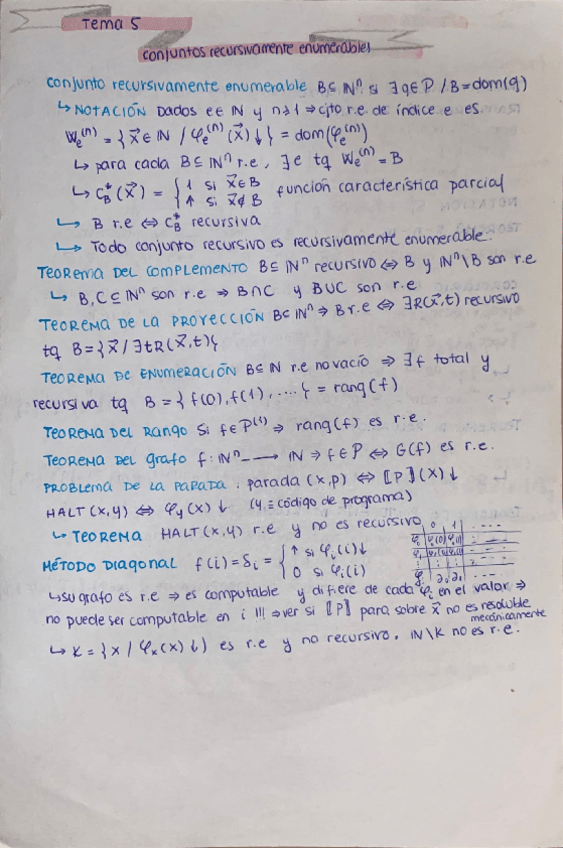 Tema 5
conjuntos recursivamente enumerables
conjunto recursivamente enumerable B⊆ℕⁿ si ∃g∈P / B=dom(g)
↳ NOTACIÓN Dados e∈ℕ y n≥1 ⇒ cjto r.e. de índice e es
Wₑ⁽ⁿ⁾ = {x⃗∈ℕ / φₑ⁽ⁿ⁾(x⃗)↓} = dom(φₑ⁽ⁿ⁾)
↳ para cada B⊆ℕⁿ r.e., ∃e tq Wₑ⁽ⁿ⁾=B
↳ C*_B(x⃗) = { 1 si x⃗∈B función característica parcial
↑ si x⃗∉B
↳ B r.e ⇔ C*_B recursiva
↳ Todo conjunto recursivo es recursivamente enumerable.
TEOREMA DEL COMPLEMENTO B⊆ℕⁿ recursivo ⇔ B y ℕⁿ\B son r.e
↳ B,C⊆ℕⁿ son r.e ⇒ B∩C y B∪C son r.e
TEOREMA DE LA PROYECCIÓN B⊆ℕⁿ ⇒ B r.e ⇔ ∃R(x⃗,t) recursivo
tq B={x⃗ / ∃t R(x⃗,t)}
TEOREMA DE ENUMERACIÓN B⊆ℕ r.e no vacío ⇒ ∃f total y
recursiva tq B={f(0),f(1),....} = rang(f)
TEOREMA DEL RANGO Si f∈P⁽¹⁾ ⇒ rang(f) es r.e.
TEOREMA DEL grafo f:ℕⁿ ---→ ℕ ⇒ f∈P ⇔ G(f) es r.e.
PROBLEMA DE LA PARADA : parada (x,p) ⇔ ⟦P⟧(x)↓
HALT(x,y) ⇔ φ_y(x)↓ (y ≡ código de programa)
↳ TEOREMA HALT(x,y) r.e y no es recursivo
0 1 ....
φ₀ φ₀(0) φ₀(1) ....
MÉTODO Diagonal f(i)=δᵢ = { ↑ si φᵢ(i)↓
0 si φᵢ(i)
↳ su grafo es r.e ⇒ es computable y difiere de cada φᵢ en el valor ⇒
no puede ser computable en i !!! ⇒ ver si ⟦P⟧ para sobre x⃗ no es resoluble
mecánicamente
↳ K={x / φₓ(x)↓} es r.e y no recursivo. ℕ\K no es r.e.